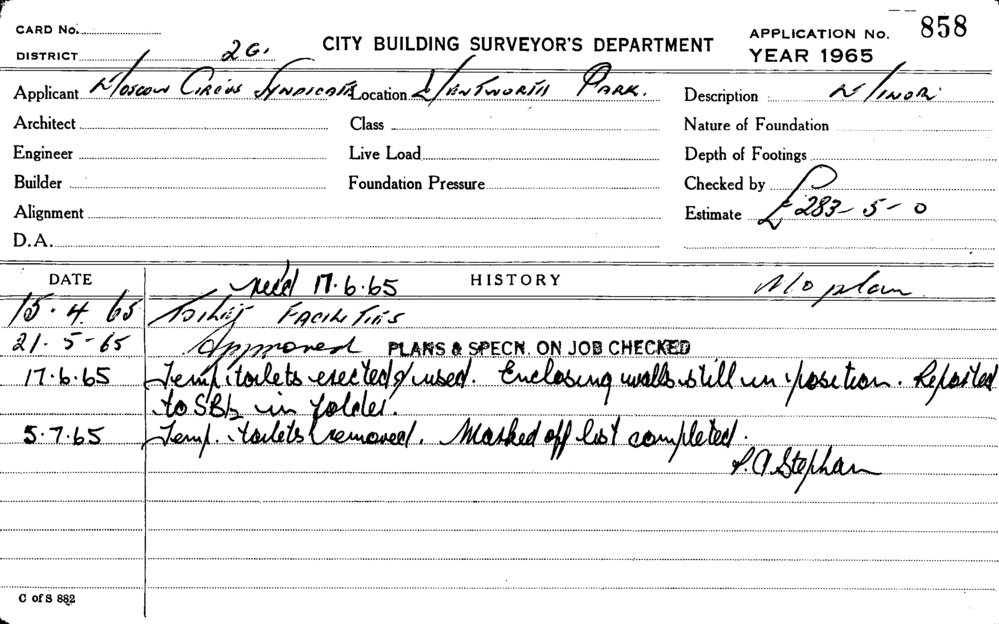 CARD No.
CITY BUILDING SURVEYOR'S DEPARTMENT
APPLICATION No. 858
DISTRICT 2G.
YEAR 1965
Applicant Moscow Circus Syndicate Location Wentworth Park. Description Minor
Architect Class Nature of Foundation
Engineer Live Load Depth of Footings
Builder Foundation Pressure Checked by
Alignment Estimate £283-5-0
D.A.
DATE HISTORY
rec'd 17.6.65 No plan
15.4.65 Toilet Facilities
21.5-65 Approved PLANS & SPECN. ON JOB CHECKED
17.6.65 Temp. toilets erected & used. Enclosing walls still in position. Reported
to SBI in folder.
5.7.65 Temp. toilets removed. Marked off list completed.
Stephan
C of S 882